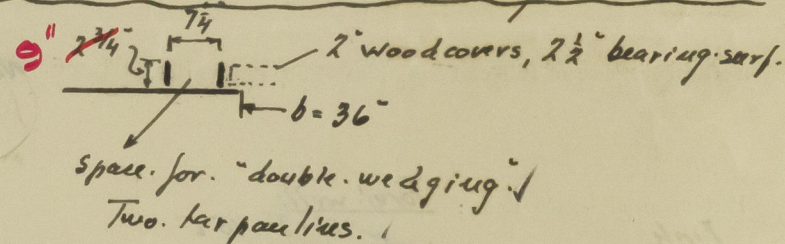 7¼
9" 2¾" 2" wood covers, 2½" bearing surf.
b = 36"
space. for. "double. wedging".
Two. tarpaulins.